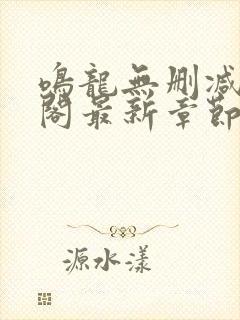 鳴龍無删减
閣最新章節
源水漾